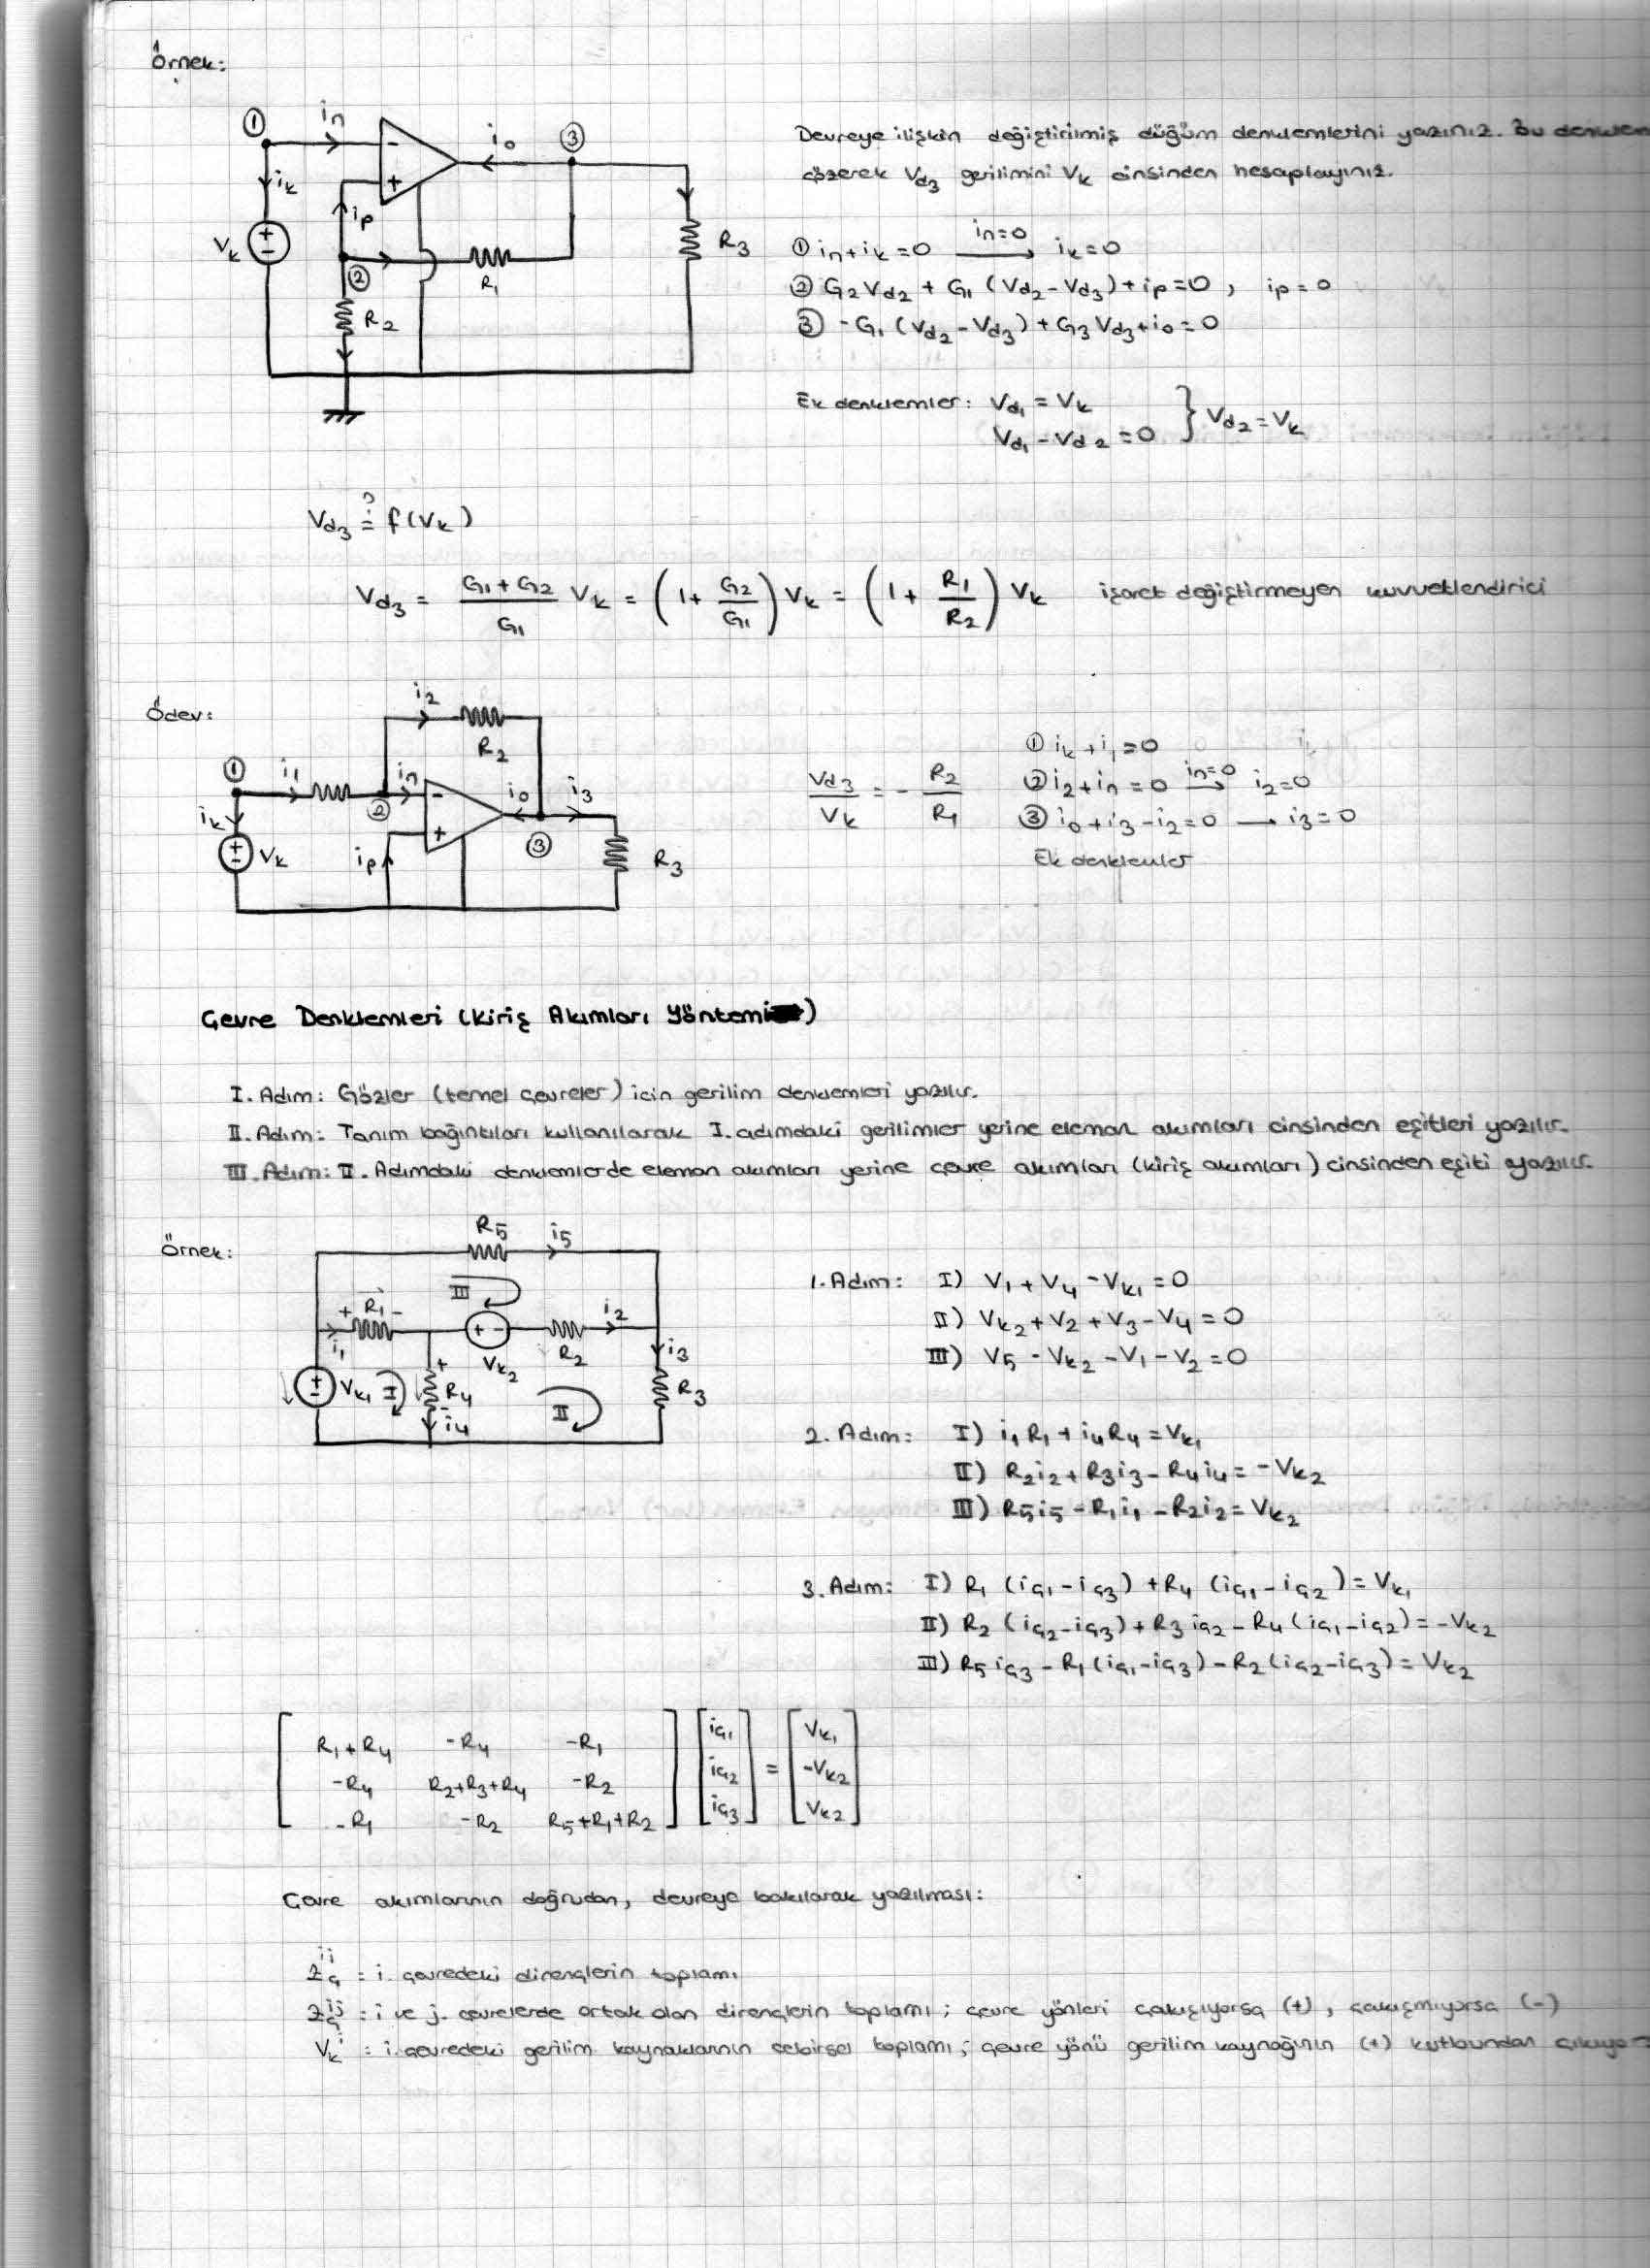 Örnek:
① in ik Vk + - ② ip R2 - + io R1 ③ R3
Devreye ilişkin değiştirilmiş düğüm denklemlerini yazınız. Bu denklem
çözerek Vd3 gerilimini Vk cinsinden hesaplayınız.
① in+ik=0 in=0 → ik=0
② G2Vd2 + G1 (Vd2-Vd3)+ip=0 , ip=0
③ -G1 (Vd2-Vd3)+G3Vd3+io=0
Ek denklemler: Vd1 = Vk
Vd1-Vd2=0 } Vd2=Vk
Vd3 ?= f(Vk)
Vd3 = (G1+G2)/G1 Vk = (1+ G2/G1) Vk = (1+ R1/R2) Vk işaret değiştirmeyen kuvvetlendirici
Ödev:
① i1 ik Vk + - ② i2 R2 in - + ip io ③ i3 R3
Vd3/Vk = - R2/R1
① ik+i1=0
② i2+in=0 in=0 → i2=0
③ io+i3-i2=0 → i3=0
Ek denklemler
Çevre Denklemleri (Kiriş Akımları Yöntemi)
I. Adım: Gözler (temel çevreler) için gerilim denklemleri yazılır.
II. Adım: Tanım bağıntıları kullanılarak I. adımdaki gerilimler yerine eleman akımları cinsinden eşitleri yazılır.
III. Adım: II. Adımdaki denklemlerde eleman akımları yerine çevre akımları (kiriş akımları) cinsinden eşiti yazılır.
Örnek:
R5 i5 III + R1 - i1 + - Vk2 R2 i2 + - Vk1 I + R4 - i4 II i3 R3
1. Adım: I) V1+V4-Vk1=0
II) Vk2+V2+V3-V4=0
III) V5-Vk2-V1-V2=0
2. Adım: I) i1R1+i4R4=Vk1
II) R2i2+R3i3-R4i4=-Vk2
III) R5i5-R1i1-R2i2=Vk2
3. Adım: I) R1 (iç1-iç3)+R4 (iç1-iç2)=Vk1
II) R2 (iç2-iç3)+R3iç2-R4(iç1-iç2)=-Vk2
III) R5iç3-R1(iç1-iç3)-R2(iç2-iç3)=Vk2
R1+R4 -R4 -R1 iç1 Vk1
-R4 R2+R3+R4 -R2 iç2 = -Vk2
-R1 -R2 R5+R1+R2 iç3 Vk2
Çevre akımlarının doğrudan, devreye bakılarak yazılması:
Zç ii = i. çevredeki dirençlerin toplamı
Zç ij = i ve j. çevrelerde ortak olan dirençlerin toplamı; çevre yönleri çakışıyorsa (+), çakışmıyorsa (-)
Vk i : i. çevredeki gerilim kaynaklarının cebirsel toplamı; çevre yönü gerilim kaynağının (+) kutbundan